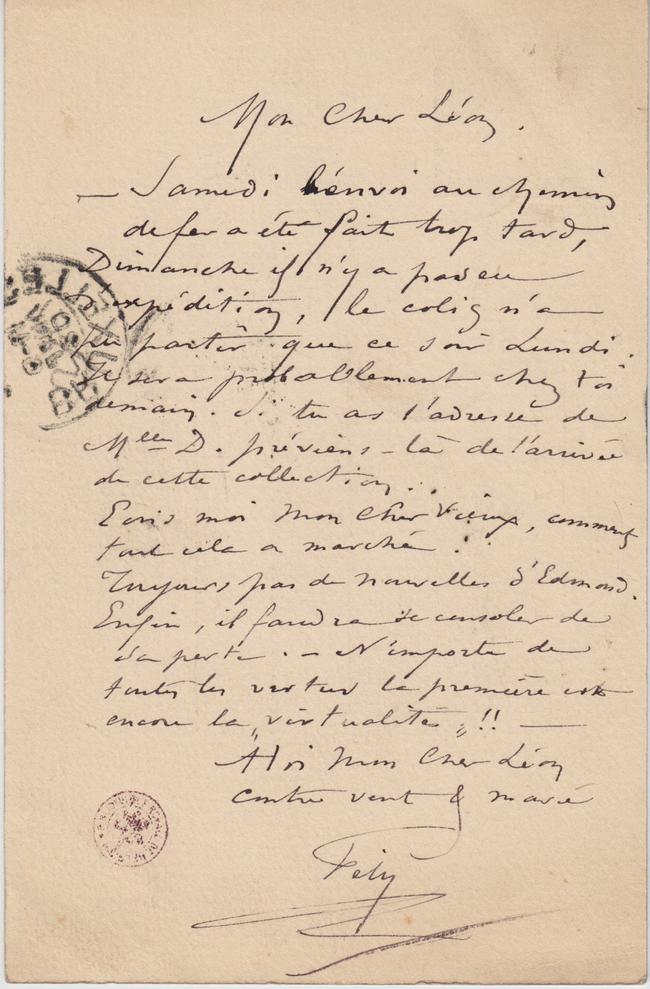 Mon Cher Léon.
— Samedi l'envoi au chemin
de fer a été fait trop tard,
Dimanche il n'y a pas eu
expédition, le colis n'a
pu partir que ce soir Lundi.
Il sera probablement chez toi
demain. Si tu as l'adresse de
Mlle D. préviens-la de l'arrivée
de cette collection.
Ecris moi Mon Cher Vieux, comment
tout cela a marché.
Toujours pas de nouvelles d'Edmond.
Enfin, il faudra se consoler de
sa perte. — N'importe de
toutes les vertus la première est
encore la „virtualité„!! —
A toi Mon Cher Léon
contre vent & marée
Fély